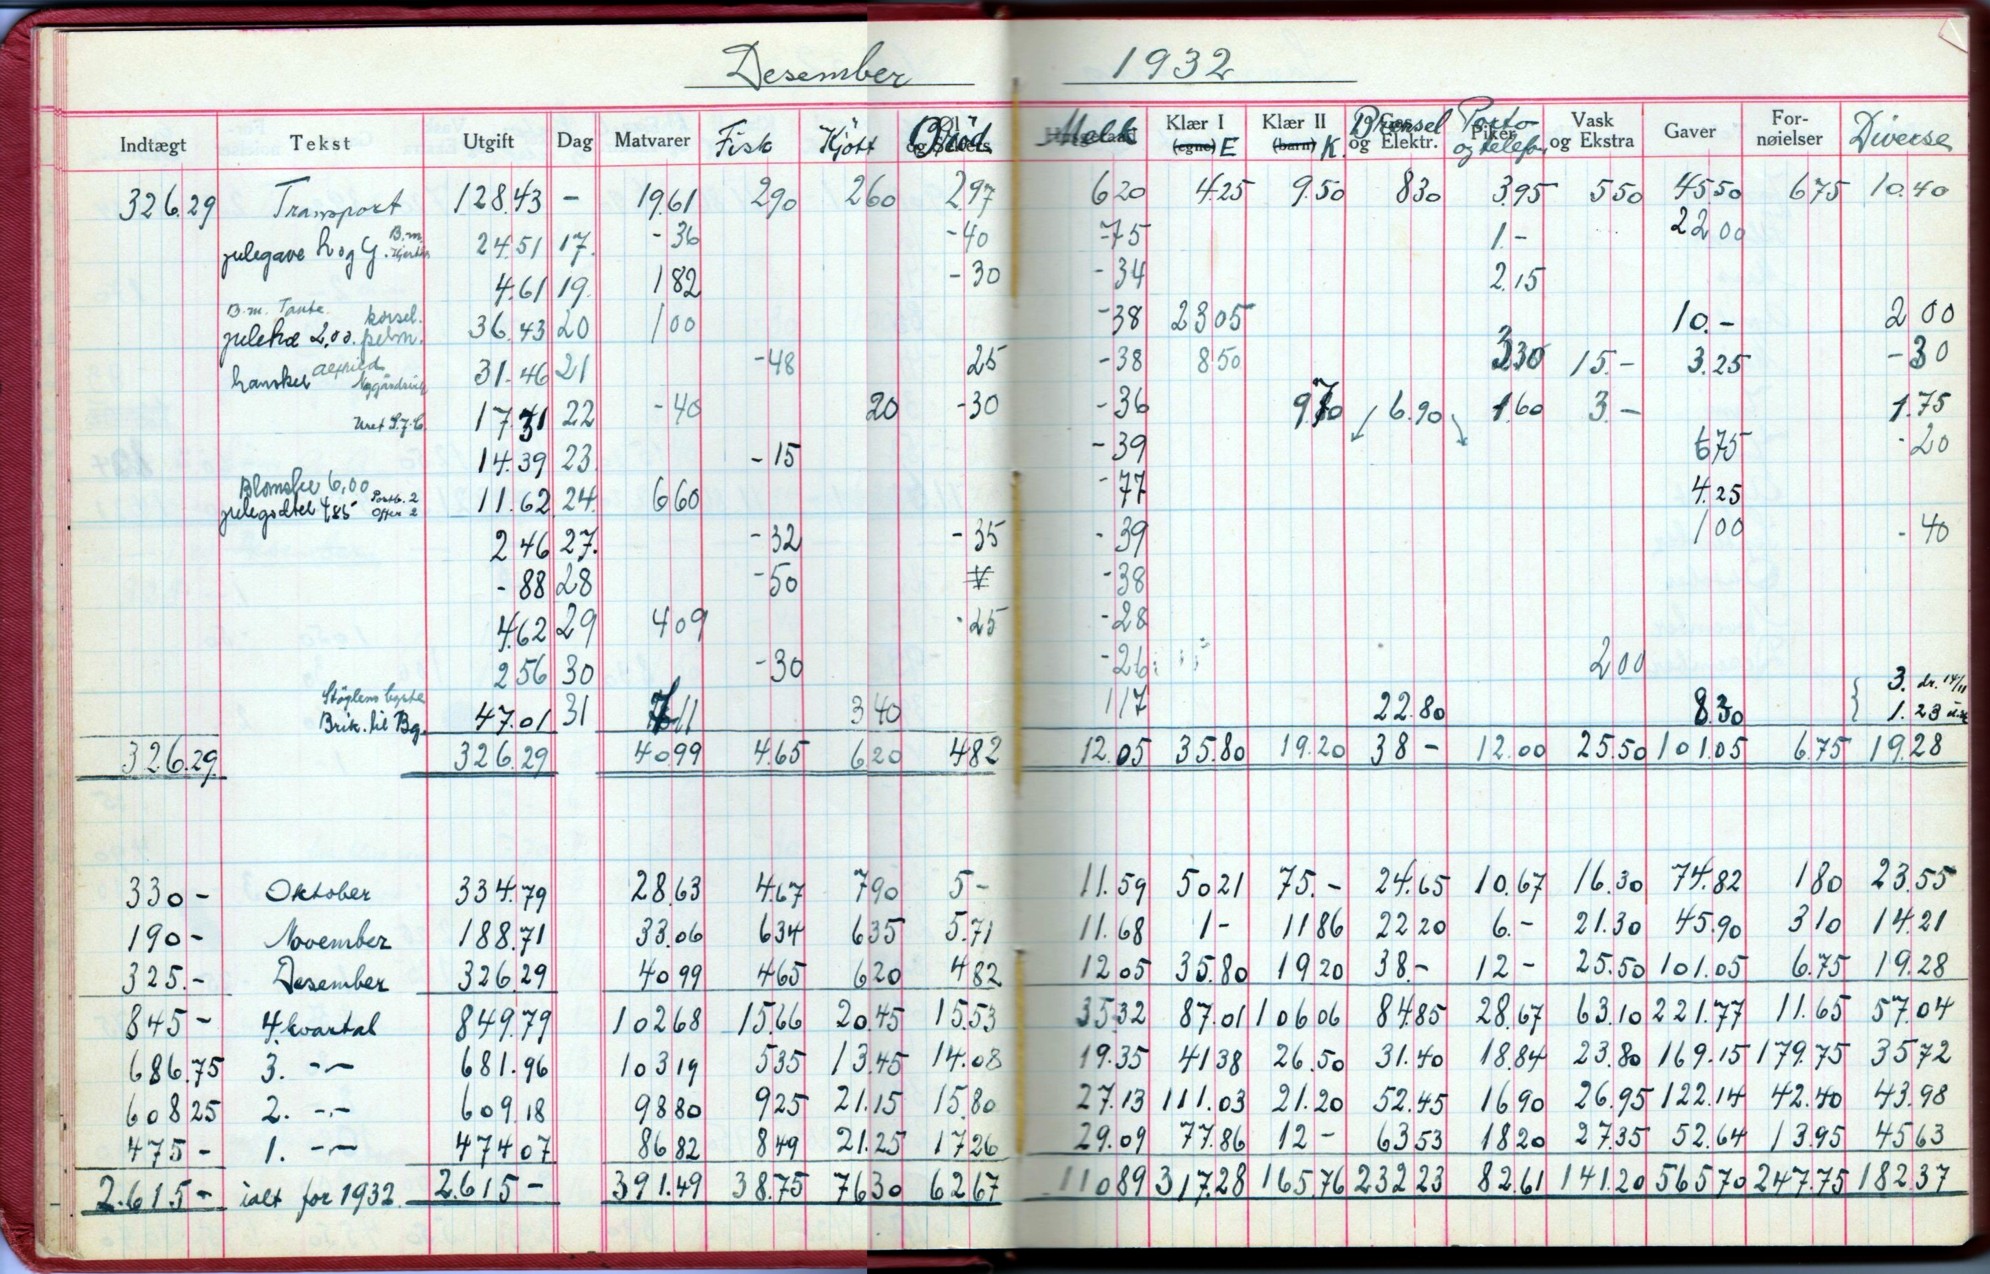 Desember 1932
Indtægt Tekst Utgift Dag Matvarer Fisk Kjött Bröd Melk Klær I (egne) E Klær II (barn) K. Brensel og Elektr. Porto og telefon Vask og Ekstra Gaver For-nøielser Diverse
326.29 Transport 128.43 - 19.61 290 260 297 620 4.25 9.50 830 3.95 550 4550 675 10.40
julegave h og G. B.m. 24.51 17. -36 -40 -75 1.- 22 00
4.61 19. 182 -30 -34 2.15
B.m. Tante korsel.
julekæ 2,00. 36.43 20 100 -38 2305 10.- 2 00
hansker 31.46 21 -48 25 -38 850 330 15.- 3.25 -30
17.31 22 -40 20 -30 -36 6.90 1.60 3.- 1.75
14.39 23 -15 -39 675 -20
Blomster 6,00
4 85 11.62 24. 660 -77 4.25
2 46 27. -32 -35 -39 100 -40
-88 28 -50 -38
4.62 29 409 -25 -28
2 56 30 -30 -26 200
Brik. til Bg. 47.01 31 340 117 22.80 8.30 3. 1.23
326.29 326.29 4099 4.65 620 482 12.05 35.80 19.20 38- 12.00 25.50 101.05 6.75 19.28
330- Oktober 334.79 28.63 4.67 790 5- 11.59 5021 75.- 24.65 10.67 16.30 74.82 180 23.55
190- November 188.71 33.06 634 635 5.71 11.68 1- 1186 2220 6.- 21.30 45.90 310 14.21
325.- Desember 326.29 4099 465 620 482 1205 35.80 1920 38.- 12- 25.50 101.05 6.75 19.28
845- 4. kvartal 849.79 10268 15.66 20.45 15.53 3532 87.01 10606 84.85 28.67 63.10 221.77 11.65 57.04
686.75 3. -~- 681.96 10319 535 13.45 14.08 19.35 4138 26.50 31.40 18.84 23.80 169.15 179.75 3572
60825 2. -~- 609.18 9880 925 21.15 15.80 27.13 111.03 21.20 52.45 1690 26.95 122.14 42.40 43.98
475- 1. -~- 47407 8682 849 21.25 1726 29.09 77.86 12- 6353 1820 27.35 52.64 13.95 4563
2.615- ialt for 1932. 2.615- 391.49 38.75 7630 6267 11089 317.28 165.76 23223 82.61 141.20 56570 247.75 182.37